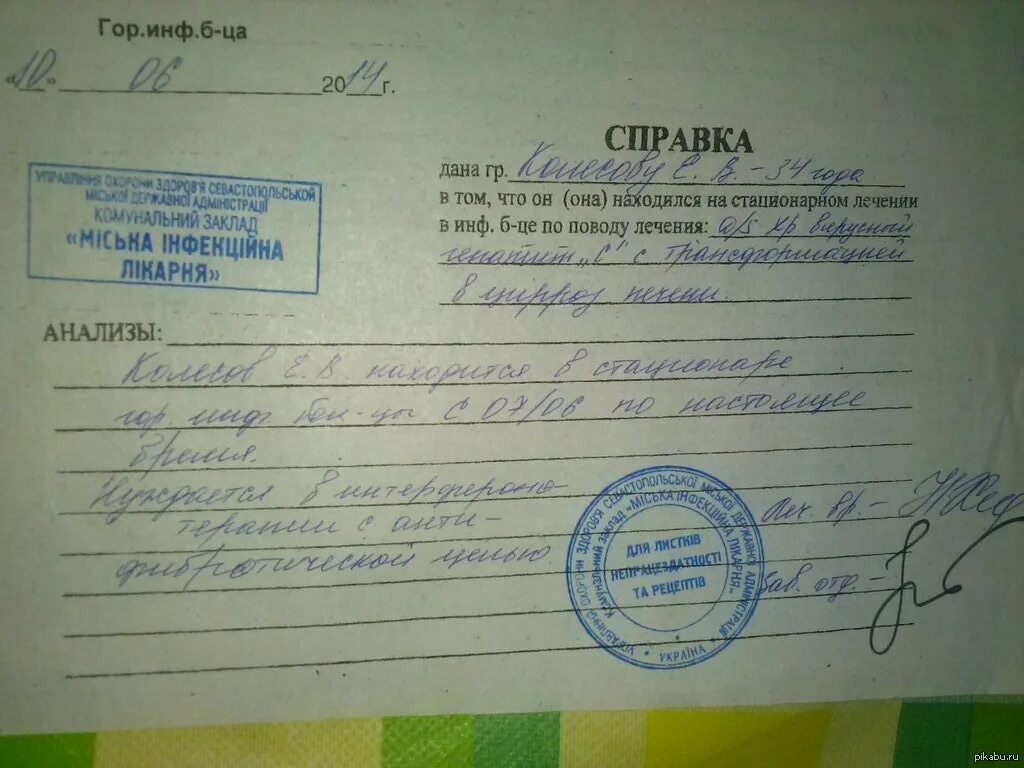 Гор.инф.б-ца
«10» 06 2014г.
УПРАВЛІННЯ ОХОРОНИ ЗДОРОВ'Я СЕВАСТОПОЛЬСЬКОЇ
МІСЬКОЇ ДЕРЖАВНОЇ АДМІНІСТРАЦІЇ
КОМУНАЛЬНИЙ ЗАКЛАД
«МІСЬКА ІНФЕКЦІЙНА
ЛІКАРНЯ»
СПРАВКА
дана гр. Колесову Е. В. - 34 года
в том, что он (она) находился на стационарном лечении
в инф. б-це по поводу лечения: Хр вирусный
гепатит „С" с трансформацией
в цирроз печени.
АНАЛИЗЫ:
Колесов Е.В находится в стационаре
гор. инф. бол-цы с 07/06 по настоящее
время.
Нуждается в интерфероно
терапии с анти-
фибротической целью
Леч. вр. -
Зав. отд. -
УПРАВЛІННЯ ОХОРОНИ ЗДОРОВ'Я СЕВАСТОПОЛЬСЬКОЇ МІСЬКОЇ ДЕРЖАВНОЇ АДМІНІСТРАЦІЇ
Комунальний заклад «МІСЬКА ІНФЕКЦІЙНА ЛІКАРНЯ»
ДЛЯ ЛИСТКІВ
НЕПРАЦЕЗДАТНОСТІ
ТА РЕЦЕПТІВ
* УКРАЇНА *
pikabu.ru